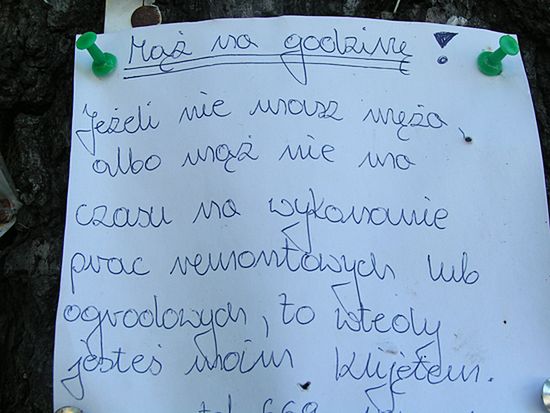 Mąż na godzinę!
Jeżeli nie masz męża,
albo mąż nie ma
czasu na wykonanie
prac remontowych lub
ogrodowych, to wtedy
jesteś moim klijętem.
tel 669